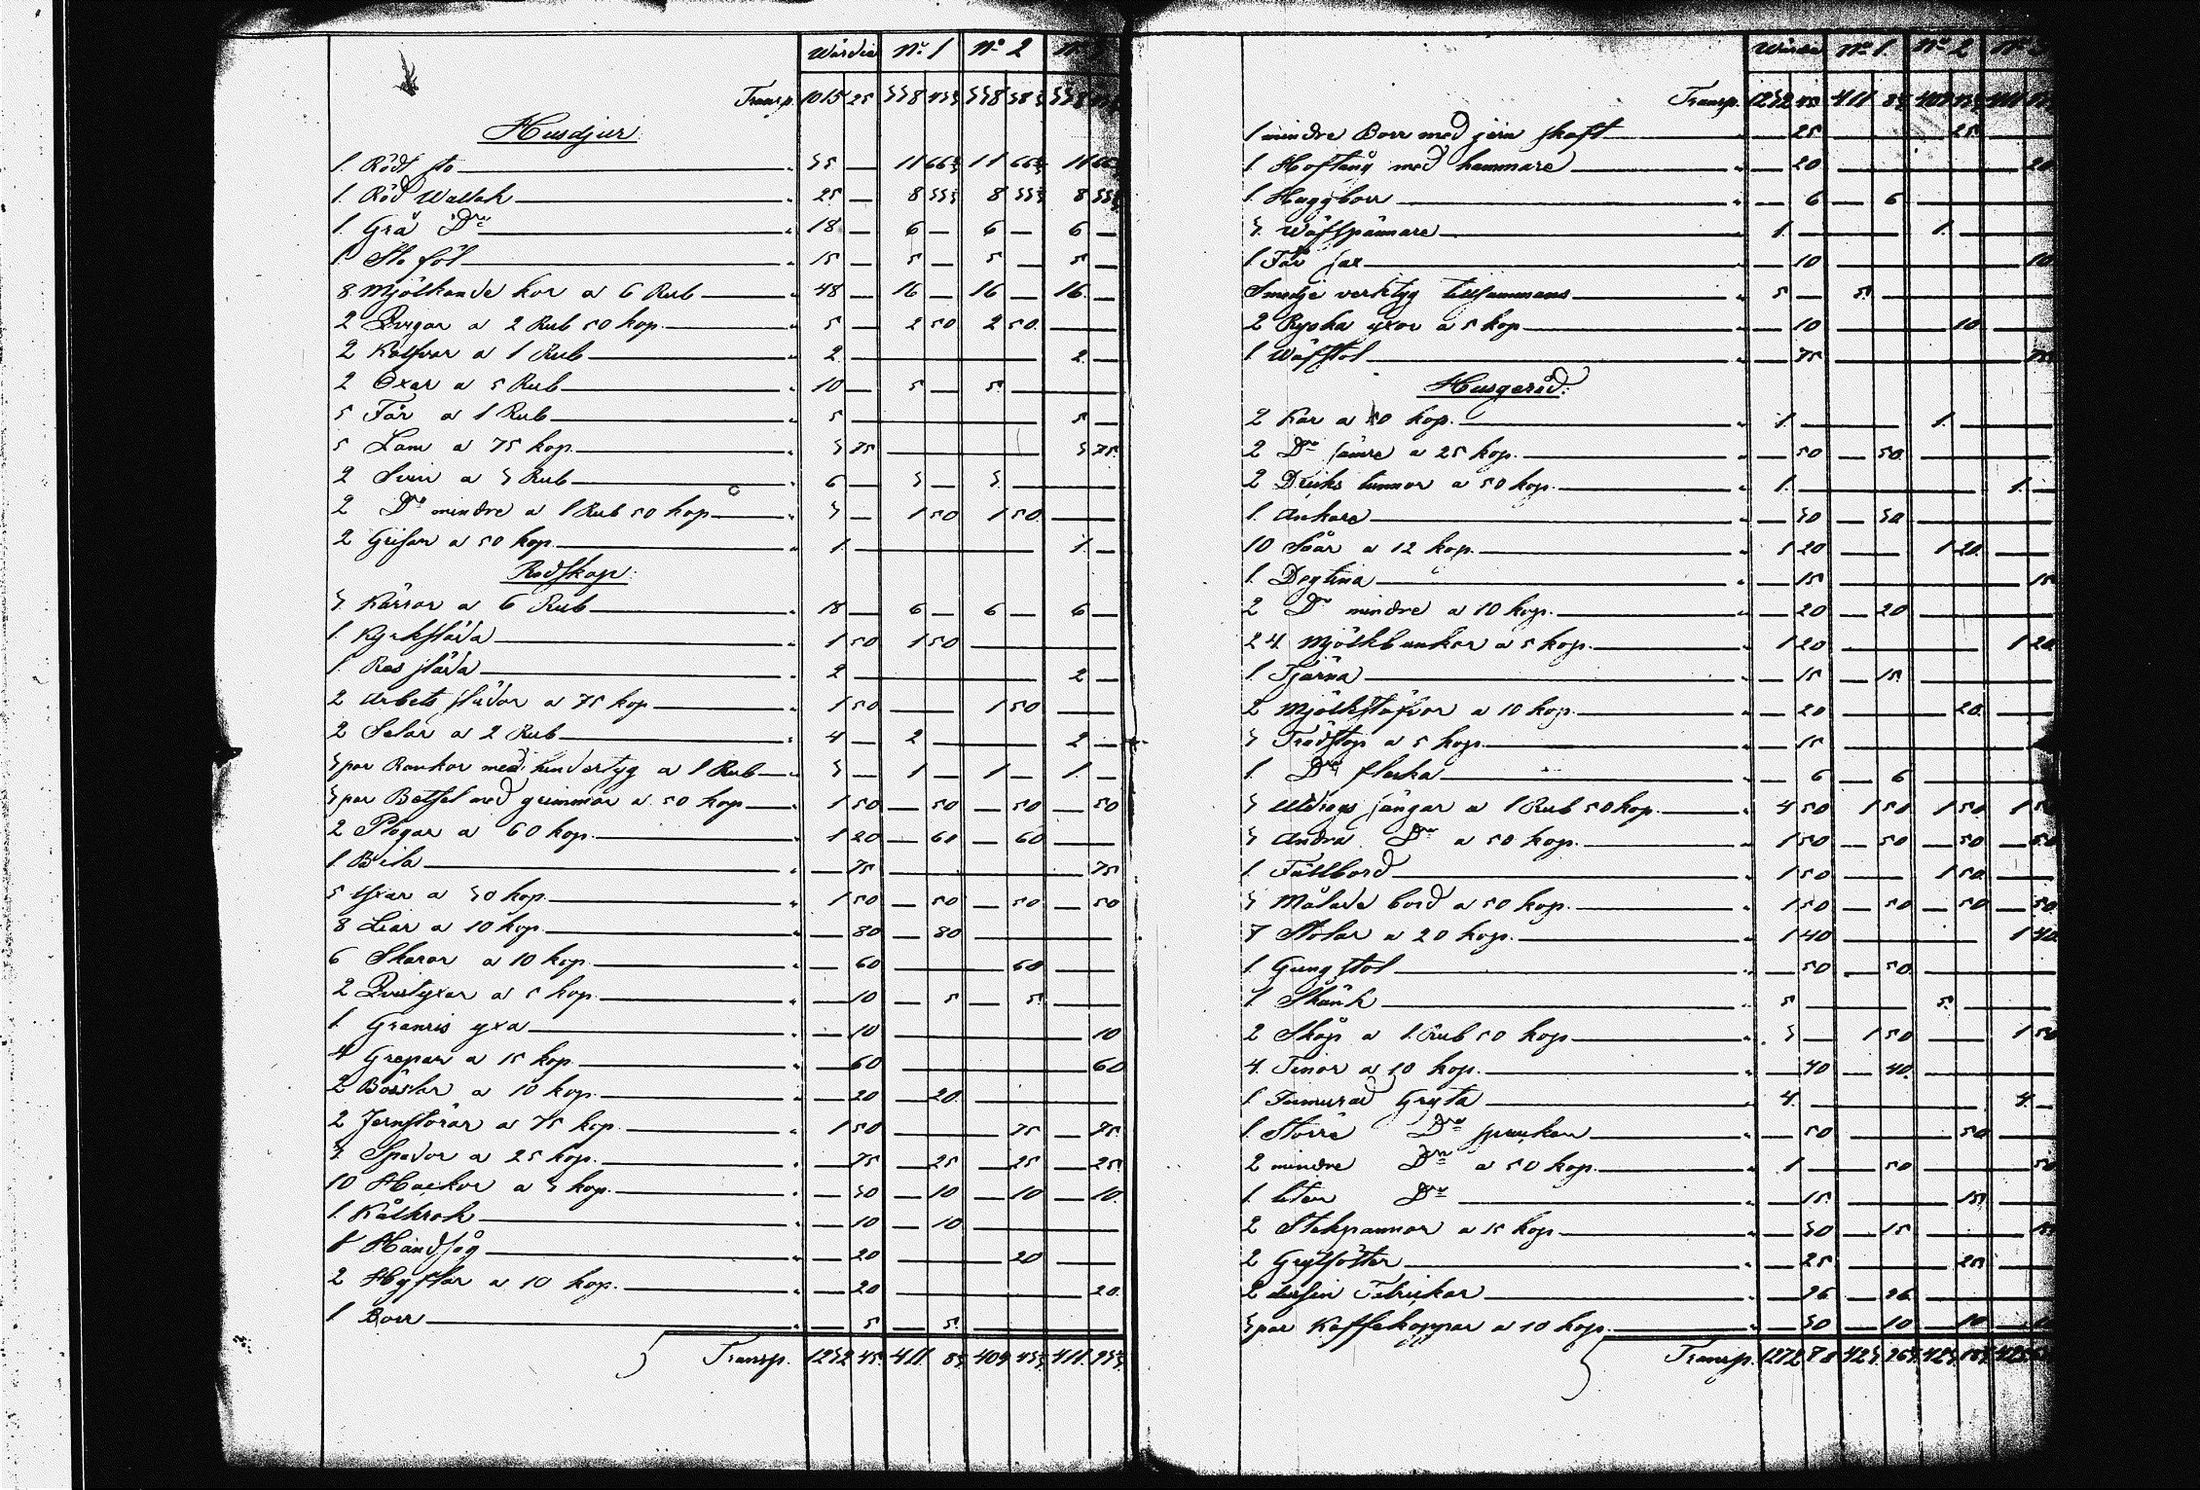 Wärdie Nº 1 Nº 2 Nº 3
Transp. 1015 25 338 338
Husdjur
1. Rödt sto 35 — 11 66⅔ 11 66⅔ 11 66⅔
1. Röd Wallak 25 — 8 33⅓ 8 33⅓ 8 33⅓
1. Grå Dº 18 — 6 — 6 — 6 —
1. Sto föl 15 — 5 — 5 — 5 —
8 Mjölkande kor a 6 Rub 48 — 16 — 16 — 16 —
2 Qvigor a 2 Rub 50 kop. 5 — 2 50 2 50
2 Kalfvar a 1 Rub 2 — 2 —
2 Oxar a 5 Rub 10 — 5 — 5 —
5 Får a 1 Rub 5 — 5 —
5 Lam a 75 kop. 3 75 3 75
2 Svin a 3 Rub 6 — 3 — 3 —
2 Dº mindre a 1 Rub 50 kop 3 — 1 50 1 50
2 Grisar a 50 kop. 1 — 1 —
Redskap
3. Kärror a 6 Rub 18 — 6 — 6 — 6 —
1. Kyrksläda 1 50 1 50
1. Res släda 2 — 2 —
2 Arbets slädor a 75 kop 1 50 — 1 50 —
2 Selar a 2 Rub 4 — 2 — 2 —
3 par Rankor med hindertyg a 1 Rub 3 — 1 — 1 — 1 —
3 par Betsel med grimmor a 50 kop 1 50 — 50 — 50 — 50
2 Plogar a 60 kop. 1 20 — 60 — 60
1 Bila — 75 — 75
5 Yxar a 30 kop. 1 50 — 50 — 50 — 50
8 Liar a 10 kop. — 80 — 80
6 Skäror a 10 kop. — 60 — 60
2 Qvistyxar a 5 kop. — 10 — 5 — 5
1. Granris yxa — 10 — 10
4 Grepar a 15 kop. — 60 — 60
2 a 10 kop. — 20 — 20
2 Jernstörar a 75 kop. 1 50 — 75 — 75
3. Spador a 25 kop. — 75 — 25 — 25 — 25
10 Hackor a 3 kop. — 30 — 10 — 10 — 10
1. Kålkrok — 10 — 10
1 Handsåg — 20 — 20
2 Hyflar a 10 kop. — 20 — 20
1 Borr — 5 — 5
Transp. 1232 45 411 8⅓ 409 411

Wärdie Nº 1 Nº 2 Nº 3
Transp. 1232 45 411 8⅓ 409 411
1 mindre Borr med jern skaft — 25 — 25
1. Hoftång med hammare — 20 — 20
1. Huggborr — 6 — 6
3. Wäfspännare 1. — 1. —
1 Får sax — 10 — 10
Smedje verktyg tillsammans 5 — 5
2 Ryska yxor a 5 kop — 10 — 10
1. Wäfstol — 75 — 75
Husgeråd.
2 Kar a 50 kop. 1. — 1. —
2 Dº sämre a 25 kop. — 50 — 50
2 Dricks tunnor a 50 kop. 1. — 1. —
1. Ankare — 30 — 30
10 Såar a 12 kop. 1 20 — 1 20 —
1. Degtina — 15 — 15
2 Dº mindre a 10 kop. — 20 — 20
24 Mjölkbunkar a 5 kop. 1 20 — 1 20
1 Tjärna — 15 — 15
2 Mjölkstäfvor a 10 kop. — 20 — 20
3 Trädstop a 5 kop. — 15
1. Dº flaska — 6 — 6
3 Utdrags sängar a 1 Rub 50 kop. 4 50 1 50 1 50 1 50
3 Andra Dº a 50 kop. 1 50 — 50 — 50 — 50
1. Fällbord 1 50 — 1 50
3 Målade bord a 50 kop. 1 50 — 50 — 50 — 50
7 Stolar a 20 kop. 1 40 — 1 40
1. Gungstol — 50 — 50
1 Skänk 5 — 5 —
2 Skåp a 1 Rub 50 kop 3 — 1 50 — 1 50
4. Tinor a 10 kop. — 40 — 40
1 Inmurad Gryta 4. — 4. —
1. Större Dº sprucken — 50 — 50
2 mindre Dº a 50 kop. 1 — 50 — 50
1. liten Dº — 15 — 15
2 Stekpannor a 15 kop — 30 — 15 — 15
2 Grytfötter — 25 — 25
2 dussin — 26 — 26
3 par Kaffekoppar a 10 kop. — 30 — 10 — 10
Transp. 1272 78